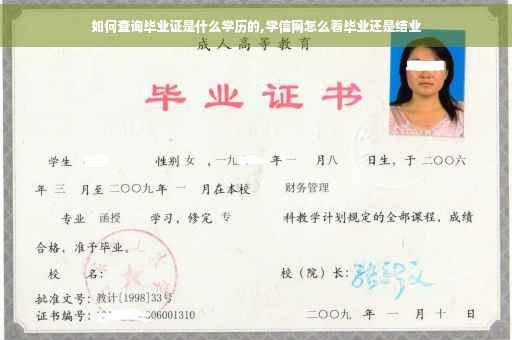 如何查询毕业证是什么学历的,学信网怎么看毕业还是结业
成人高等教育
毕业证书
学生 性别 女 ,一九 年 一 月八 日生，于 二〇〇六
年 三 月至 二〇〇九 年 一 月在本校 财务管理
专业 函授 学习，修完 专 科教学计划规定的全部课程，成绩
合格，准予毕业。
校 名： 校（院）长：
批准文号：教计[1998]33号
证书编号： 006001310 二〇〇九 年 一 月 十 日